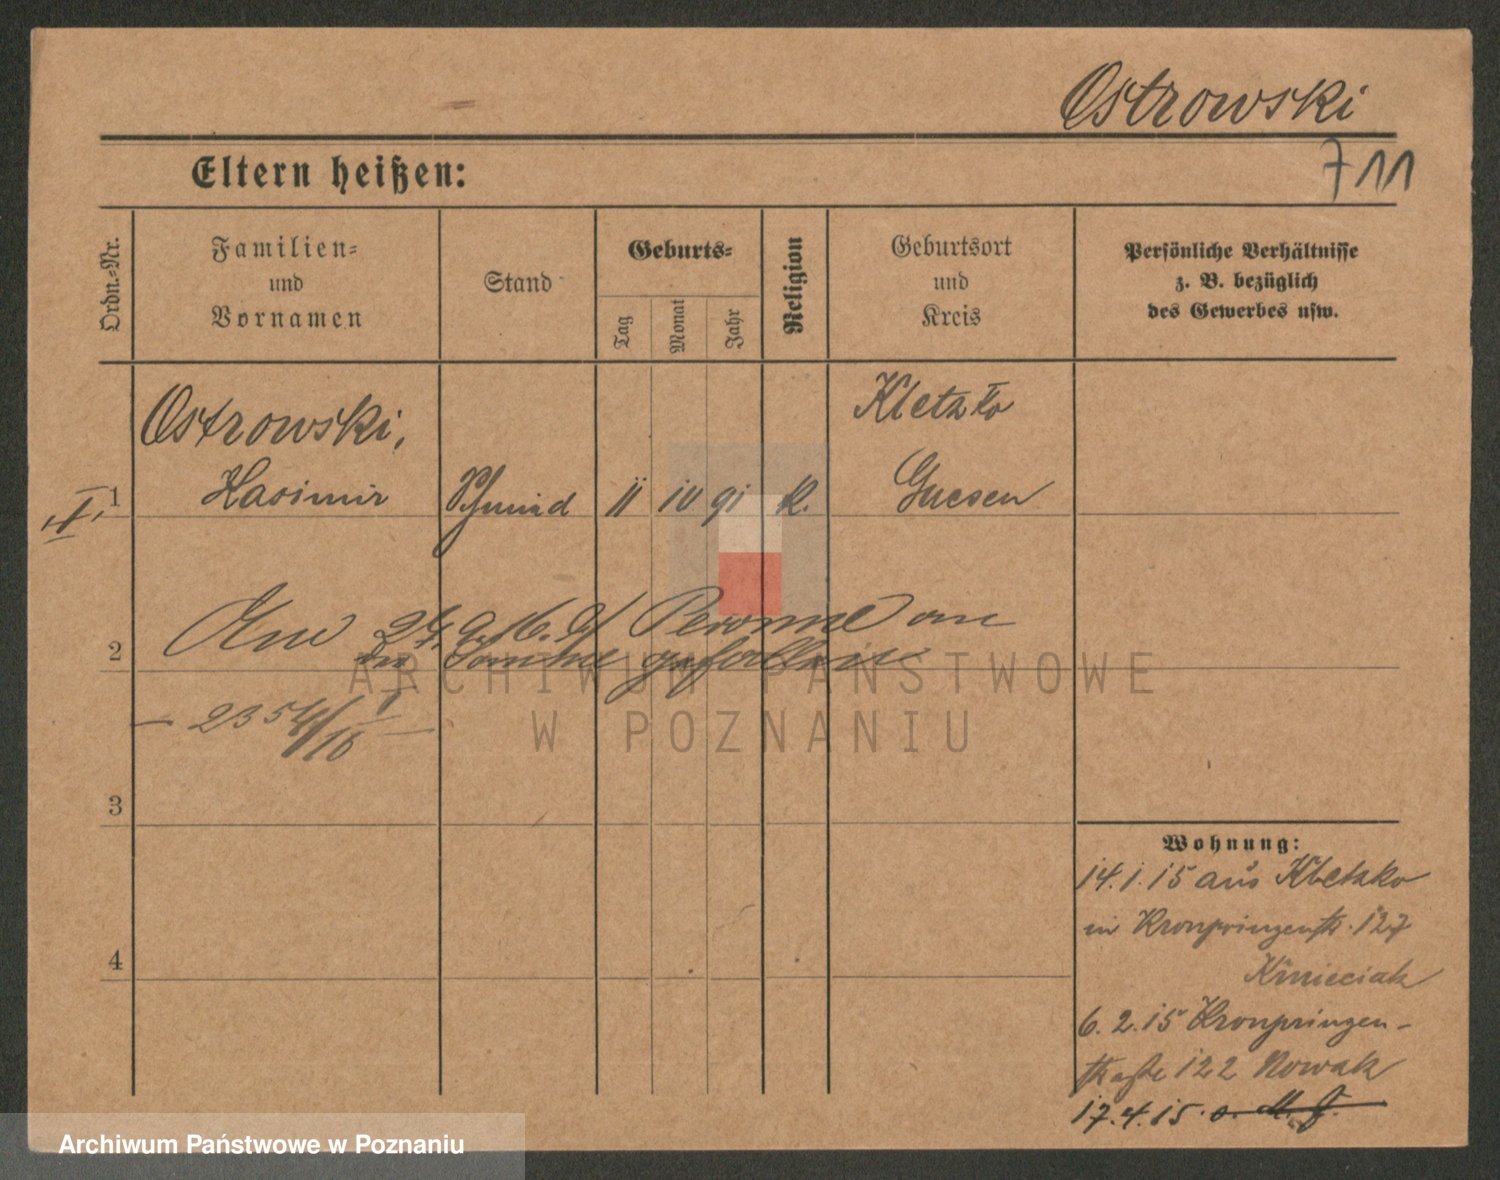 Ostrowski
711
Eltern heißen:
Ordn.-Nr.
Familien-
und
Vornamen
Stand
Geburts-
Tag
Monat
Jahr
Religion
Geburtsort
und
Kreis
Persönliche Verhältnisse
z. B. bezüglich
des Gewerbes usw.
Ostrowski,
Kasimir
Schmied
11
91
k.
Kletzko
Gnesen
I
1
Am 24. 9. 16. Peronne an
der Somme gefallen
2
2354/16
3
4
Wohnung:
14.1.15 aus Kletzko
in Kronprinzenstr. 127
Kmieciak
6.2.15 Kronprinzen-
straße 122 Nowak
17.4.15.
ARCHIWUM PAŃSTWOWE
W POZNANIU
Archiwum Państwowe w Poznaniu